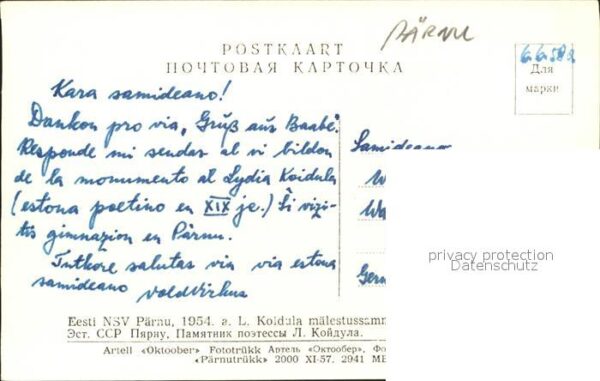 PÄRNU
POSTKAART
ПОЧТОВАЯ КАРТОЧКА
6.6.58
Для
марки
Kara samideano!
Dankon pro via „Gruß aus Baabe“.
Responde mi sendas al vi bildon
de la monumento al Lydia Koidula
(estona poetino en XIX jc.) Ŝi vizi-
tis gimnazion en Pärnu.
Tutkore salutas via via estona
samideano
Samideano
W
Wa
Germ
privacy protection
Datenschutz
Eesti NSV Pärnu, 1954. a. L. Koidula mälestussamm
Эст. ССР Пярну, Памятник поэтессы Л. Койдула.
Artell «Oktoober» Fototrükk Артель «Октообер», Фо
«Pärnutrükk» 2000 XI-57. 2941 MB